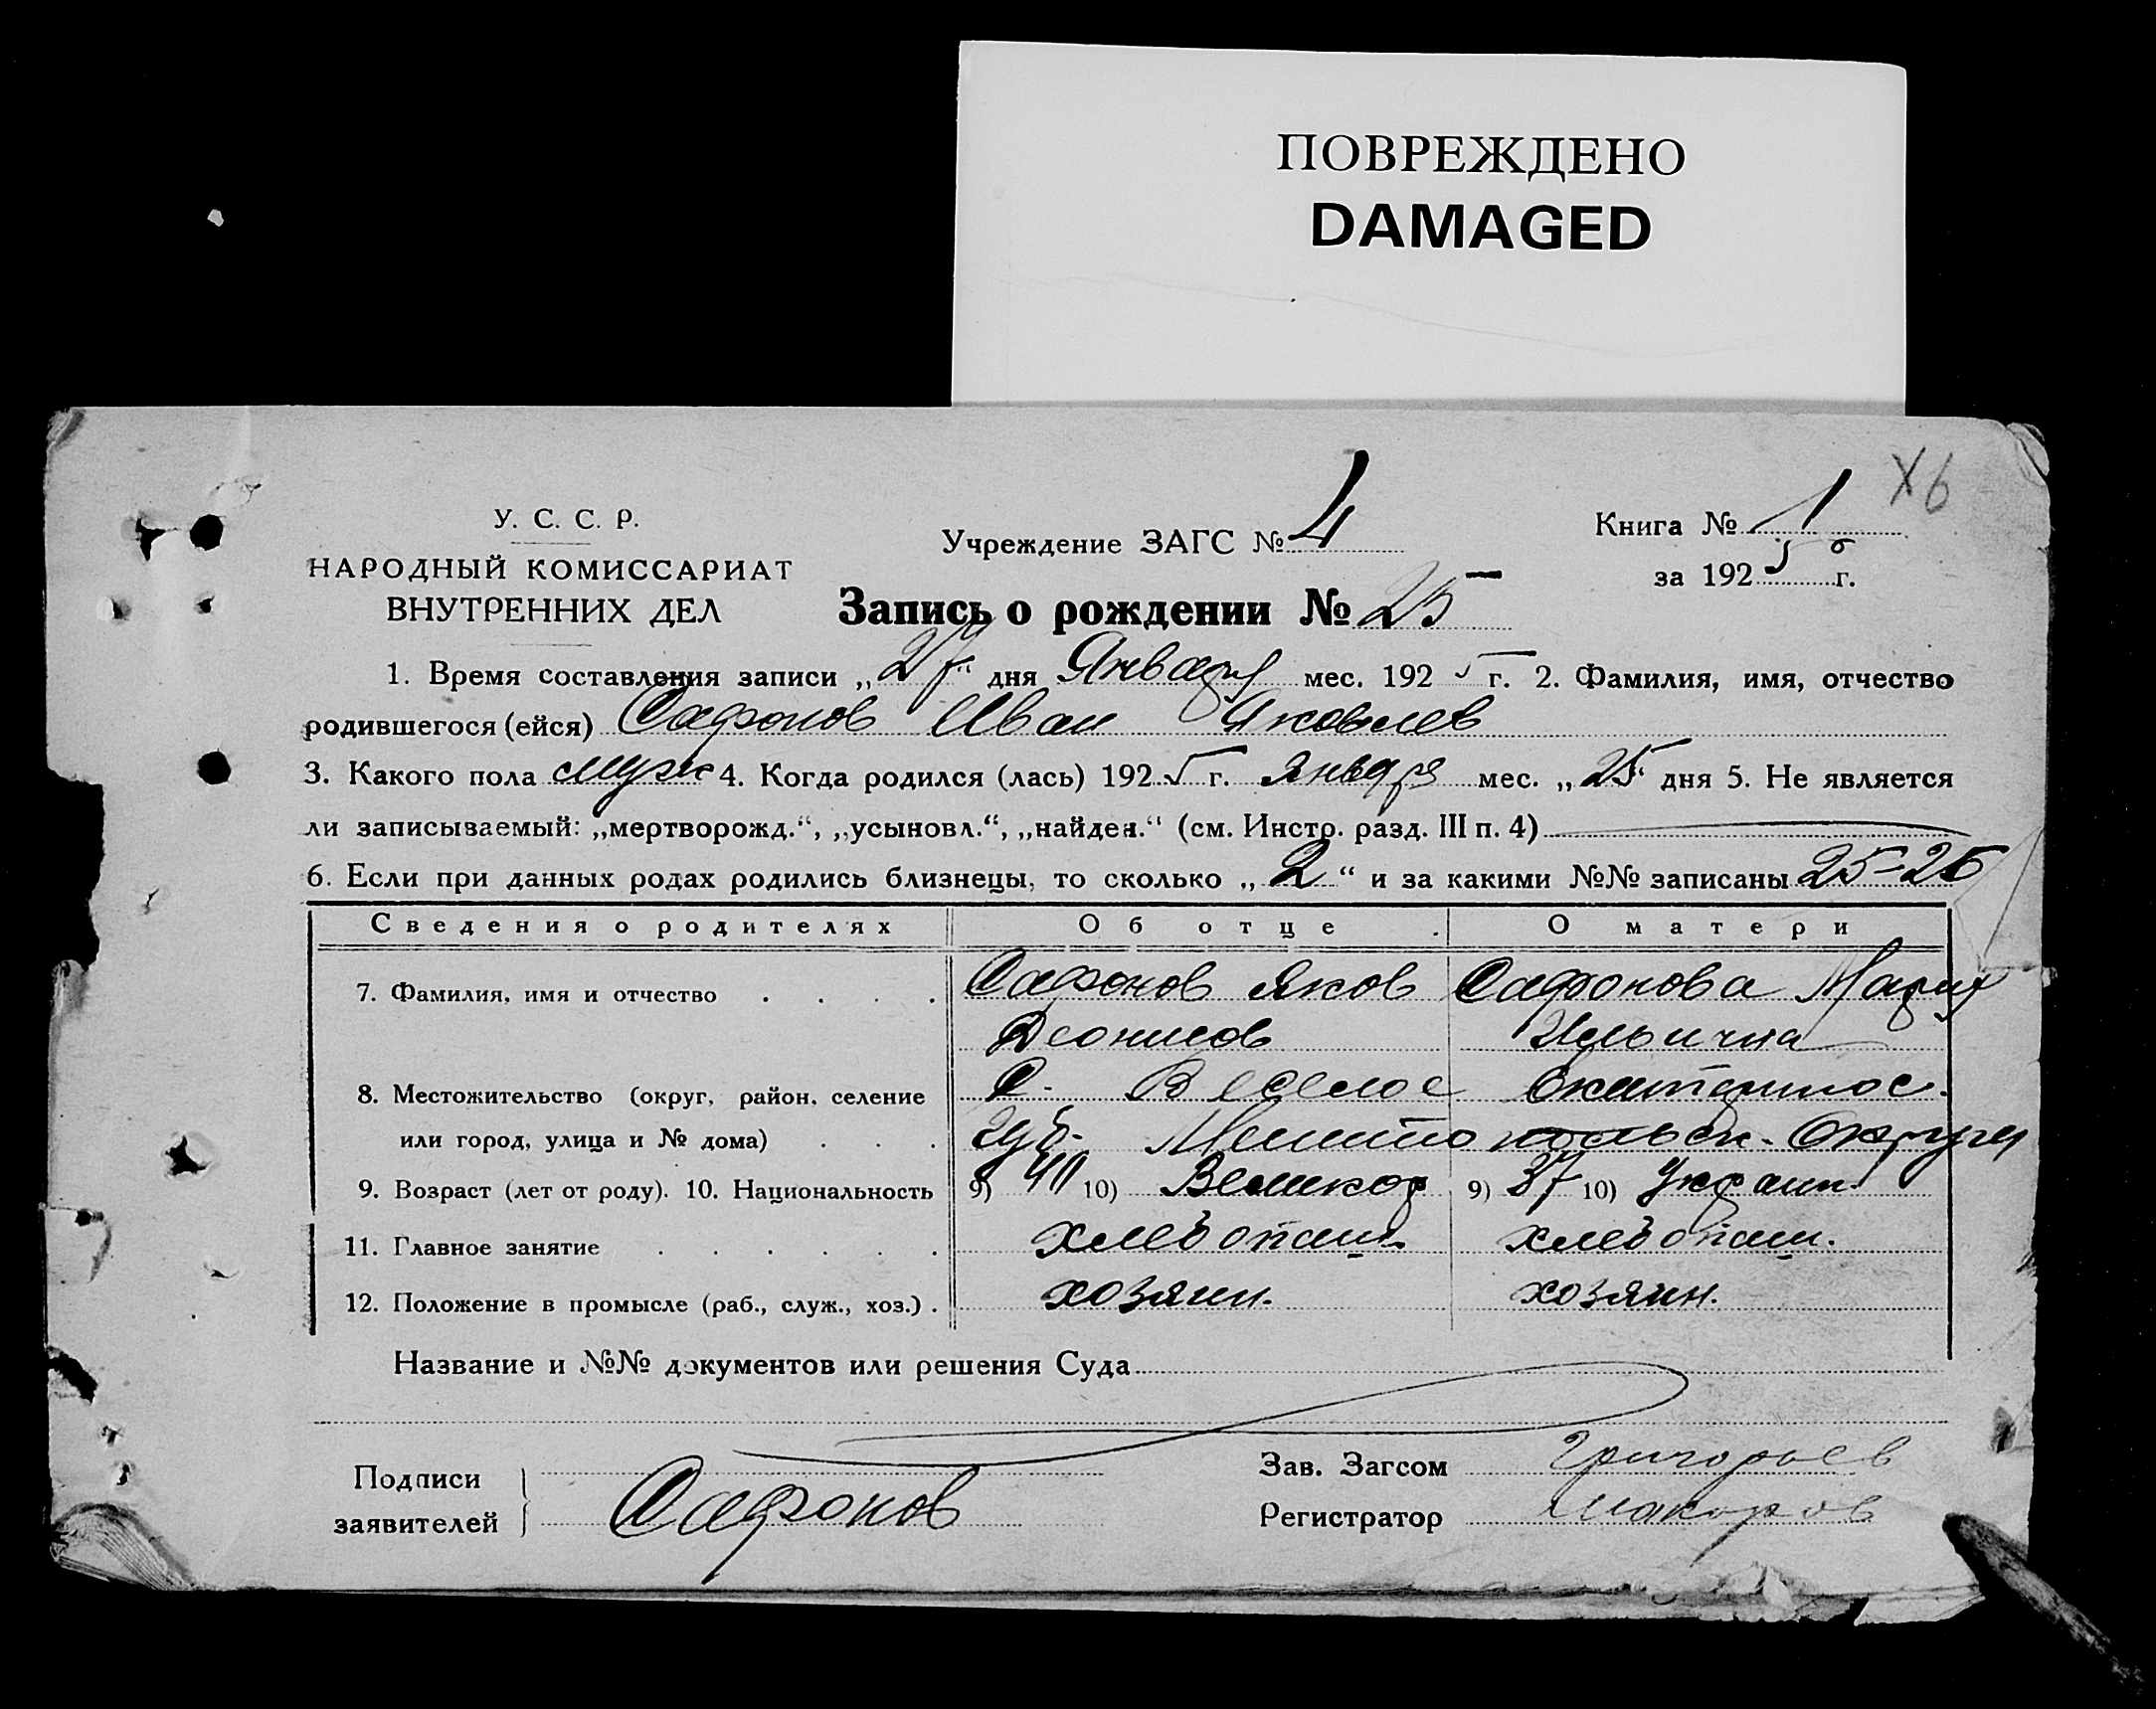 ПОВРЕЖДЕНО
DAMAGED
Х6
У. С. С. Р.
НАРОДНЫЙ КОМИССАРИАТ
ВНУТРЕННИХ ДЕЛ
Учреждение ЗАГС № 4
Книга № 1
за 1925 г.
Запись о рождении № 25
1. Время составления записи „27“ дня Января мес. 1925 г. 2. Фамилия, имя, отчество
родившегося (ейся) Сафонов Иван Яковлев
3. Какого пола муж 4. Когда родился (лась) 1925 г. Января мес. „25“ дня 5. Не является
ли записываемый: „мертворожд.“, „усыновл.“, „найден.“ (см. Инстр. разд. III п. 4)
6. Если при данных родах родились близнецы, то сколько „2“ и за какими №№ записаны 25-26
Сведения о родителях Об отце О матери
7. Фамилия, имя и отчество Сафонов Яков Сафонова Мария
Леонтов Ильична
8. Местожительство (округ, район, селение С. Веселое Екатеринос.
или город, улица и № дома) губ. Мелитопольск. Округа
9. Возраст (лет от роду). 10. Национальность 9) 40 10) Великор 9) 37 10) Украин.
11. Главное занятие хлебопаш. хлебопаш.
12. Положение в промысле (раб., служ., хоз.) хозяин. хозяин.
Название и №№ документов или решения Суда
Подписи
заявителей Сафонов
Зав. Загсом Григорьев
Регистратор